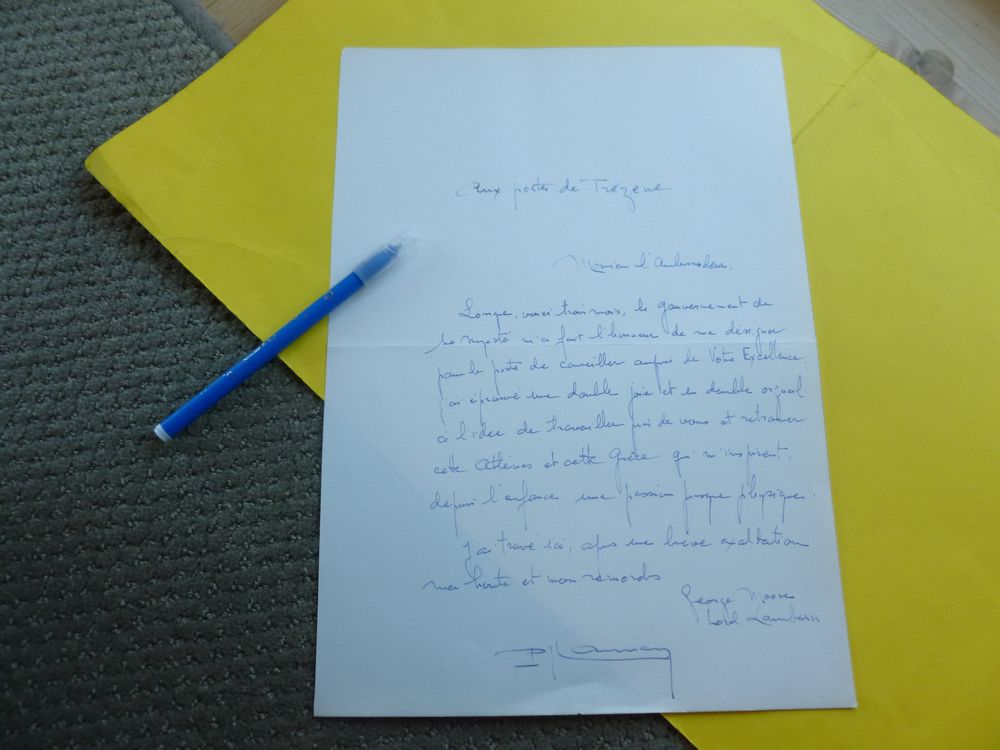 Aux portes de Trézène
Monsieur l'Ambassadeur,
Lorsque, voici trois mois, le gouvernement de
Sa Majesté m'a fait l'honneur de me désigner
pour le poste de conseiller auprès de Votre Excellence,
j'ai éprouvé une double joie et un double orgueil
à l'idée de travailler près de vous et retrouver
cette Athènes et cette Grèce qui m'inspirent,
depuis l'enfance, une passion presque physique.
J'ai trouvé ici, après une brève exaltation
ma honte et mon remords
George Moore
Lord